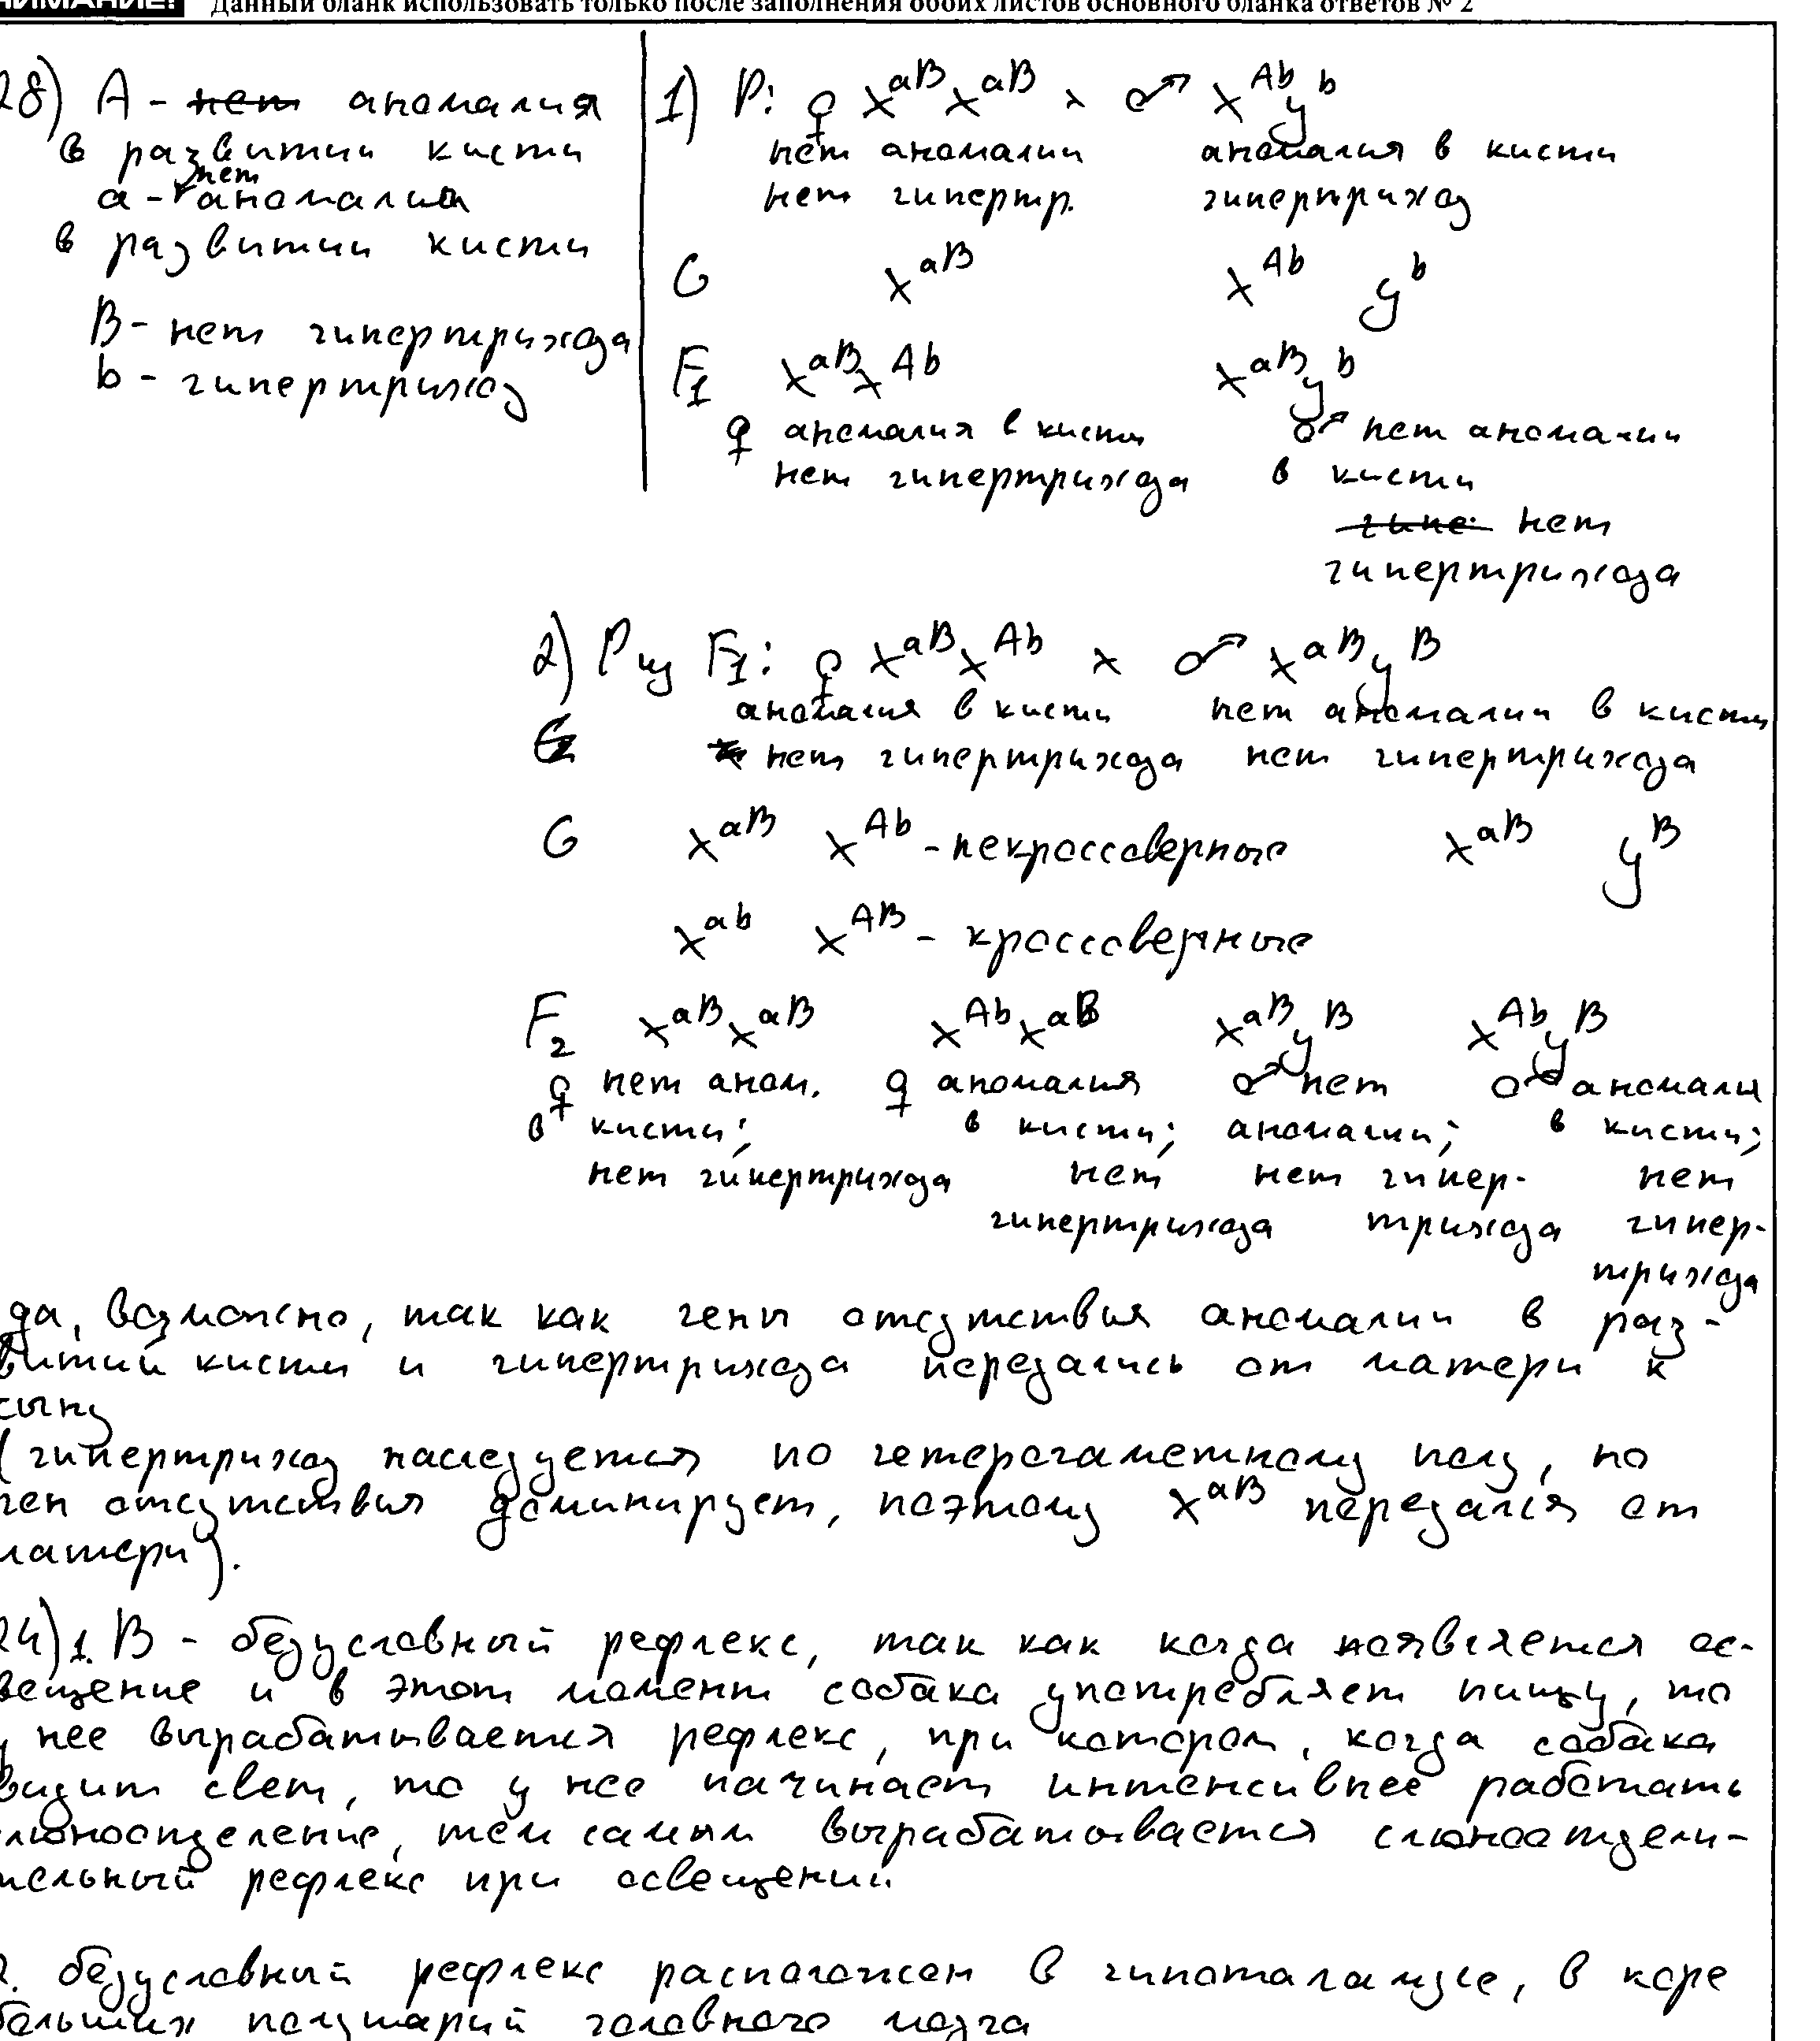 Данный бланк использовать только после заполнения обоих листов основного бланка ответов № 2
28) А - нет аномалия
в развитии кисти
а - нет аномалии
в развитии кисти
B - нет гипертрихоза
b - гипертрихоз
1) P: ♀ X^aB X^aB × ♂ X^Ab y^b
нет аномалии аномалия в кисти
нет гипертр. гипертрихоз
G X^aB X^Ab y^b
F1 X^aB X^Ab X^aB y^b
♀ аномалия в кисти ♂ нет аномалии
нет гипертрихоза в кисти
гипе нет
гипертрихоза
2) P из F1: ♀ X^aB X^Ab × ♂ X^aB y^B
аномалия в кисти нет аномалии в кисти
нет гипертрихоза нет гипертрихоза
G X^aB X^Ab - некроссоверные X^aB y^B
X^ab X^AB - кроссоверные
F2 X^aB X^aB X^Ab X^aB X^aB y^B X^Ab y^B
♀ нет аном. ♀ аномалия ♂ нет ♂ аномали
в кисти; в кисти; аномалии; в кисти;
нет гипертрихоза нет нет гипер- нет
гипертрихоза трихоза гипер-
трихоза
да, возможно, так как гены отсутствия аномалии в раз-
витий кисти и гипертрихоза передались от матери к
сыну
(гипертрихоз наследуется по гетерогаметному полу, но
ген отсутствия доминирует, поэтому X^aB передался от
матери).
24) 1. В - безусловный рефлекс, так как когда появляется ос-
вещение и в этот момент собака употребляет пищу, то
у нее вырабатывается рефлекс, при котором, когда собака
видит свет, то у нее начинает интенсивнее работать
слюноотделение, тем самым вырабатывается слюноотдели-
тельный рефлекс при освещении.
2. безусловный рефлекс расположен в гипоталамусе, в коре
больших полушарий головного мозга